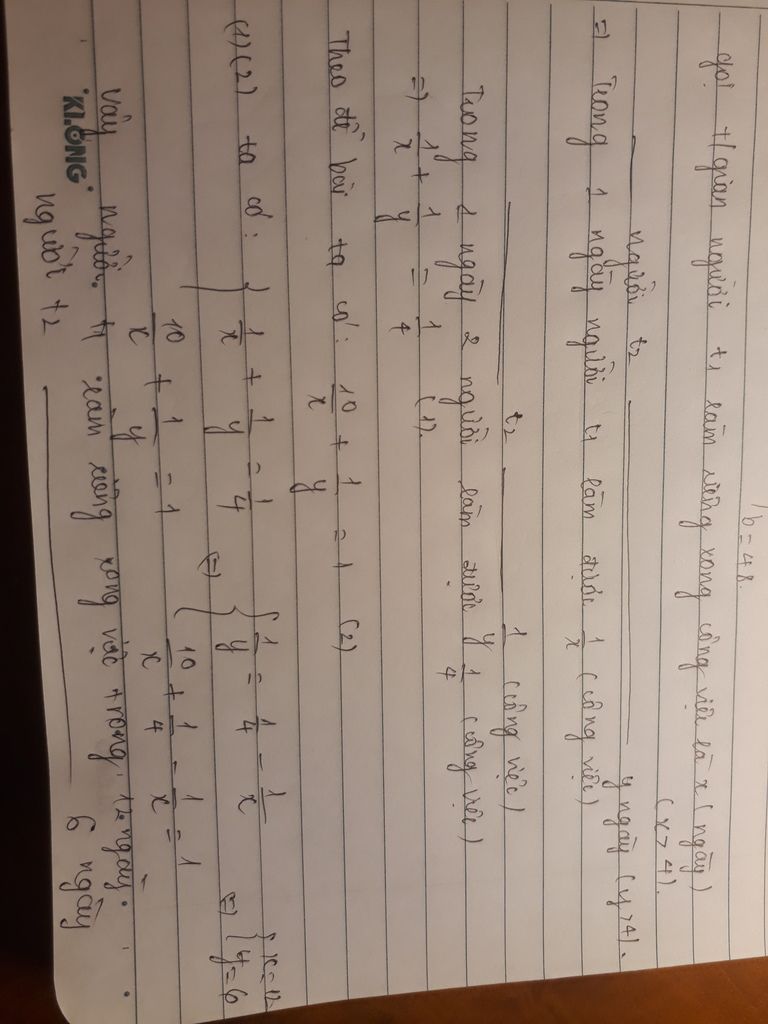 b = 48.
gọi t/gian người t1 làm riêng xong công việc là x (ngày)
(x > 4).
người t2 y ngày (y > 4).
=) Trong 1 ngày người t1 làm được 1/x (công việc)
t2 1/y (công việc)
Trong 1 ngày 2 người làm được 1/4 (công việc)
=) 1/x + 1/y = 1/4 (1).
Theo đề bài ta có: 10/x + 1/y = 1 (2)
(1)(2) ta có: { 1/x + 1/y = 1/4 (=) { 1/y = 1/4 - 1/x (=) { x = 12
10/x + 1/y = 1 10/x + 1/4 - 1/x = 1 y = 6
Vậy người t1 làm riêng xong việc trong 12 ngày.
người t2 6 ngày
KLONG